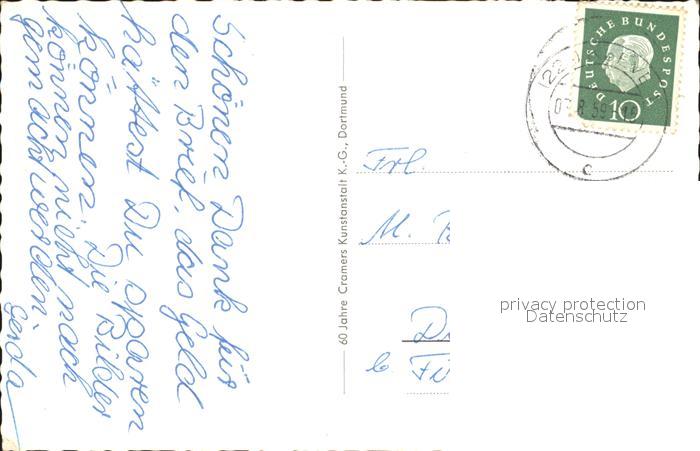 Schönen Dank für
den Brief, das Geld
hättest Du sparen
können. Die Bilder
können nicht nach
gemacht werden.
Gerda
60 Jahre Cramers Kunstanstalt K.-G., Dortmund
DEUTSCHE BUNDESPOST
10
c
Frl.
M.
b.
privacy protection
Datenschutz